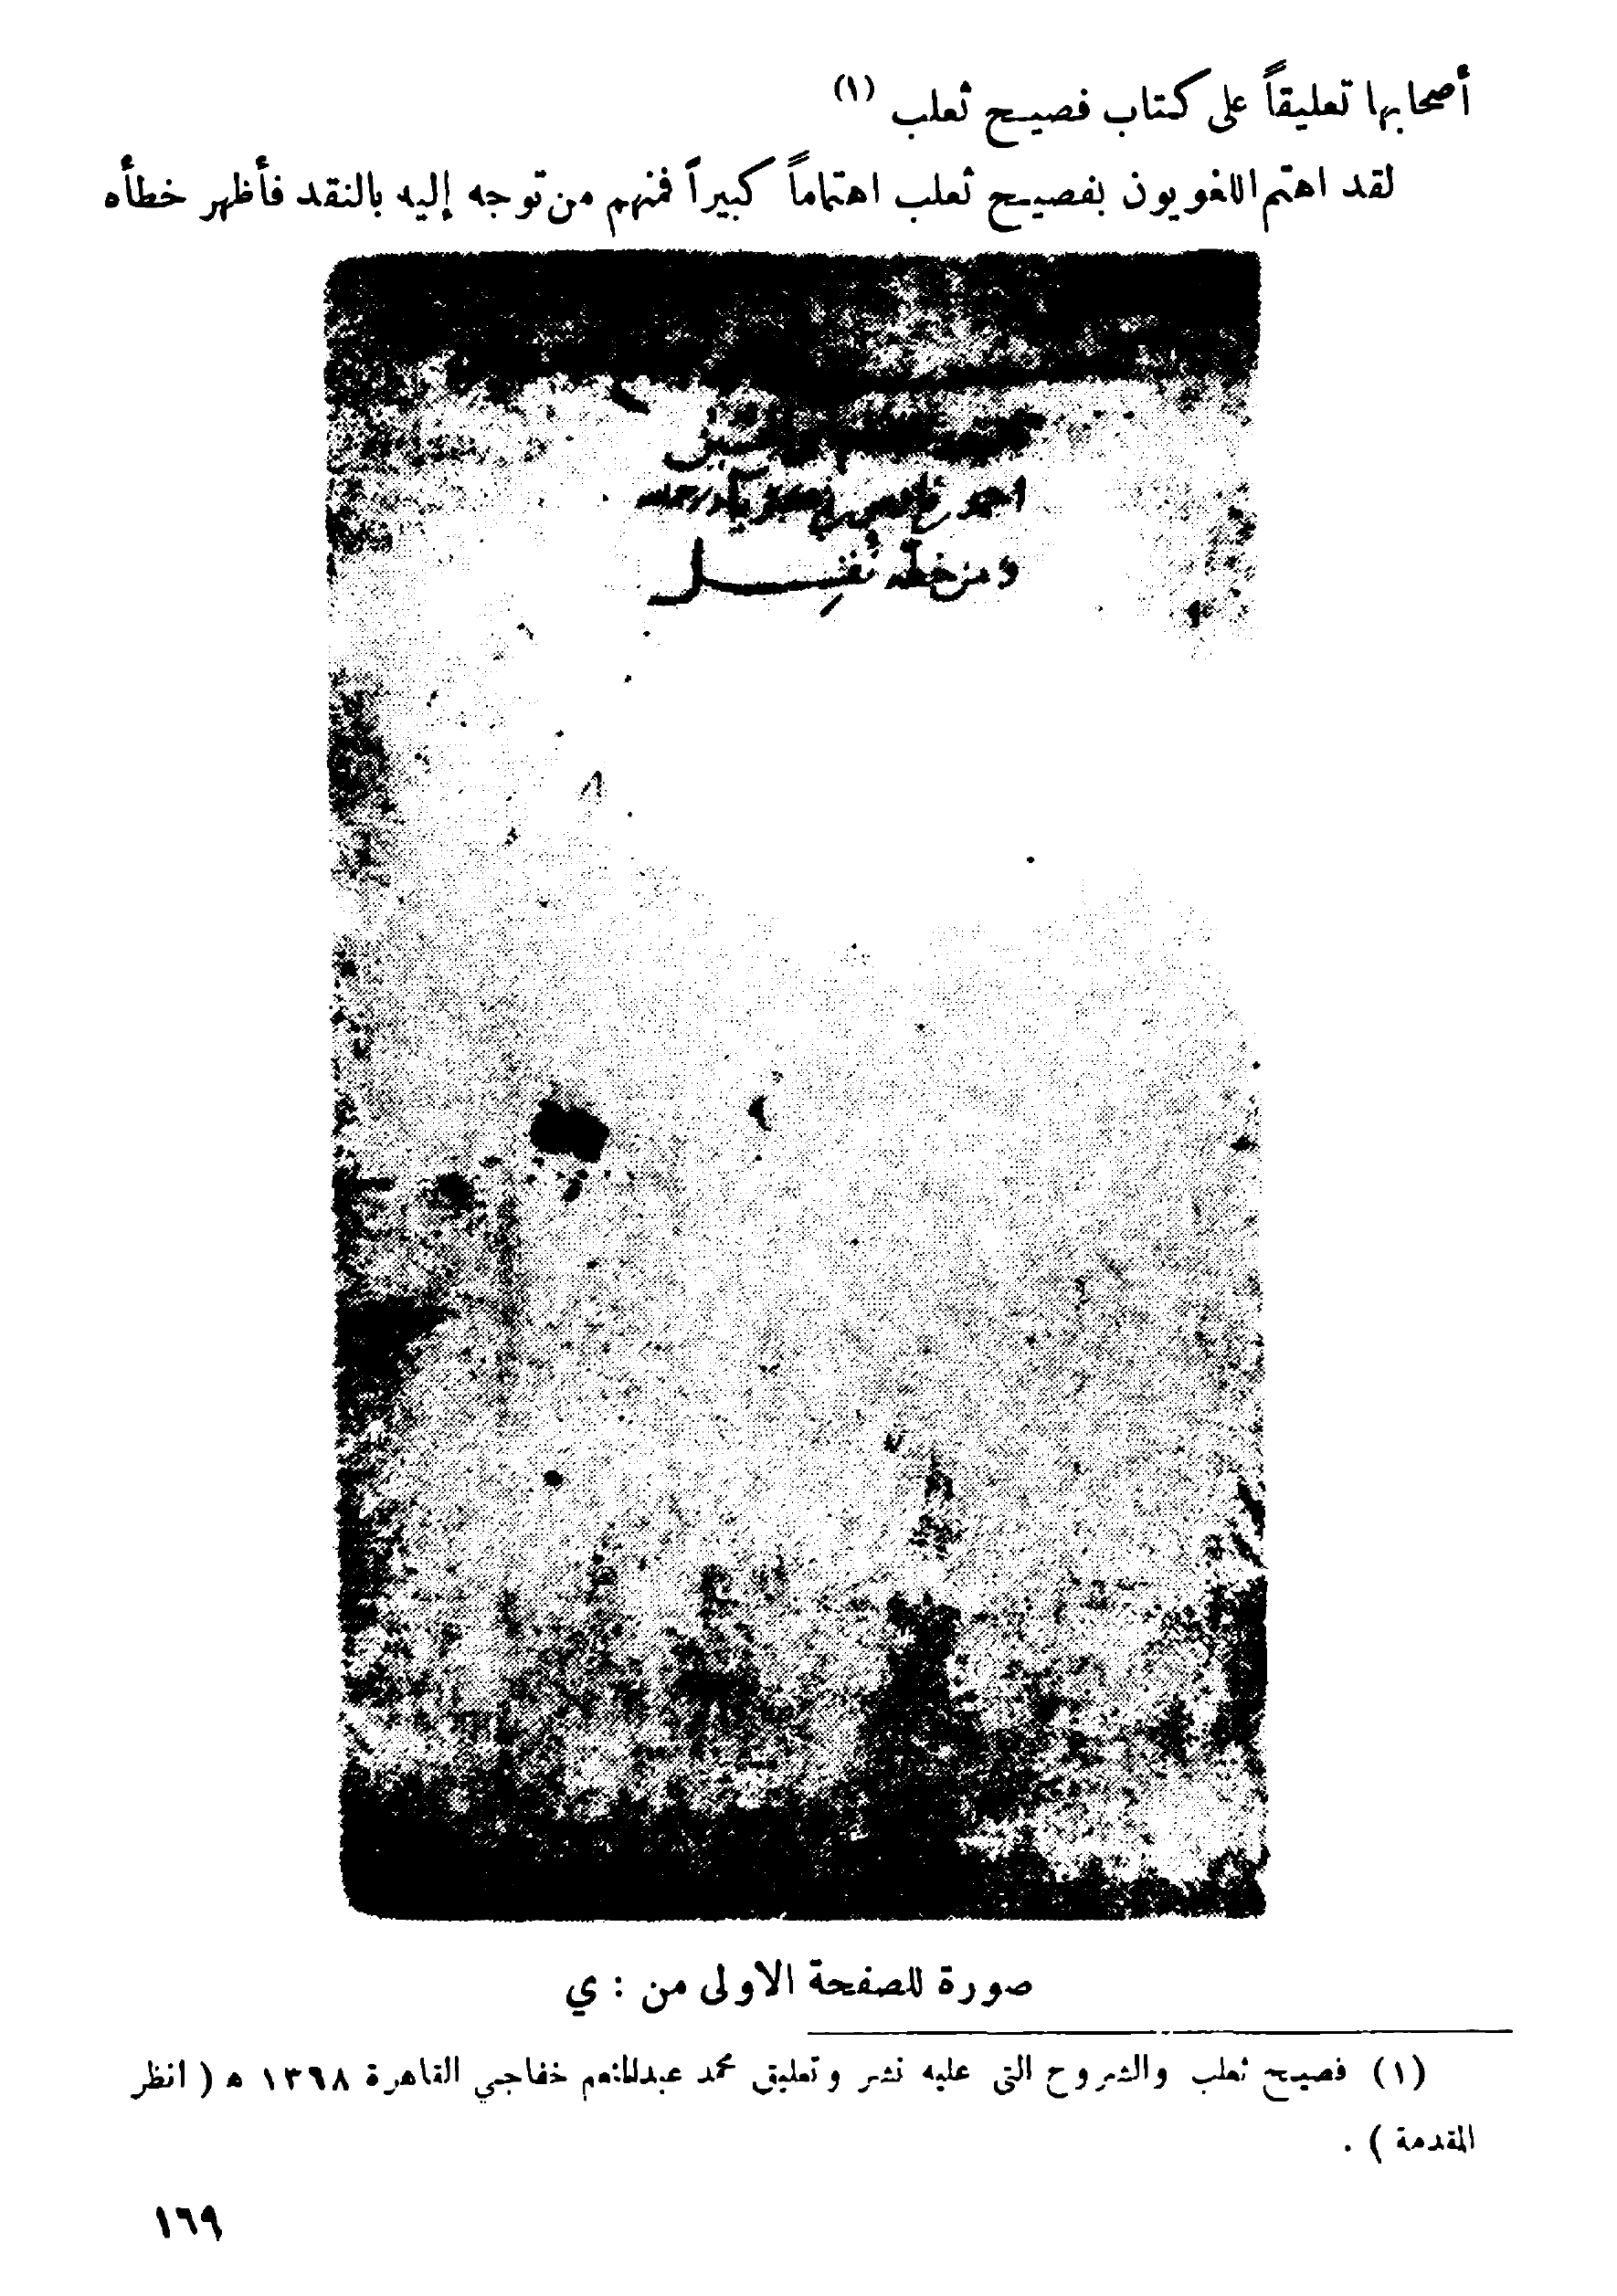 أصحابها تعليقاً على كتاب فصيح ثعلب (١)
لقد اهتم اللغويون بفصيح ثعلب اهتماماً كبيراً فمنهم من توجه إليه بالنقد فأظهر خطأه
ومن خطه نقل
صورة للصفحة الاولى من : ي
(١) فصيح ثعلب والشروح التى عليه نشر وتعليق محمد عبدالمنعم خفاجي القاهرة ١٣٦٨ ه ( انظر
المقدمة ) .
١٦٩